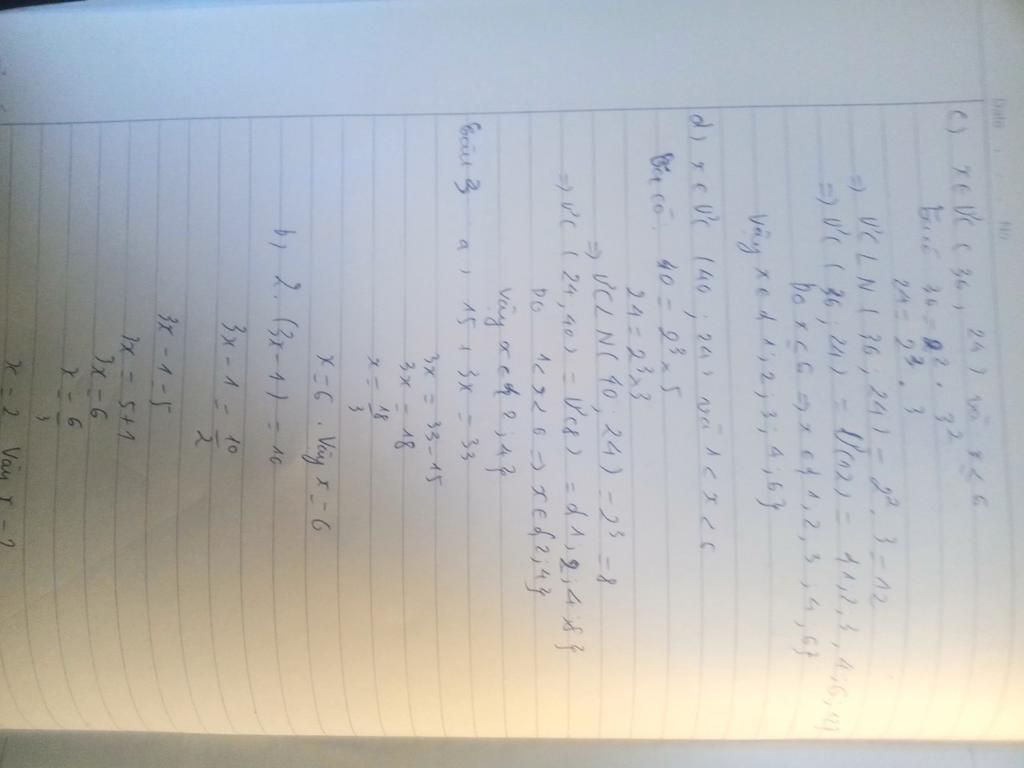 Date No
c) x ∈ ƯC ( 36, 24 ) và x ≤ 6
Ta có 36 = 2² . 3²
24 = 2³ . 3
=> ƯCLN ( 36 ; 24 ) = 2² . 3 = 12
=> ƯC ( 36 ; 24 ) = Ư(12) = {1, 2, 3, 4; 6; 12}
Do x ≤ 6 => x ∈ {1, 2, 3, 4, 6}
Vậy x ∈ {1; 2; 3; 4; 6}
d) x ∈ ƯC (40 ; 24) và 1 < x < 6
Ta có: 40 = 2³ x 5
24 = 2³ x 3
=> ƯCLN (40; 24) = 2³ = 8
=> ƯC (24, 40) = Ư(8) = {1, 2; 4; 8}
Do 1 < x < 6 => x ∈ {2; 4}
Vậy x ∈ {2; 4}
Bài 3 a, 15 + 3x = 33
3x = 33 - 15
3x = 18
x = 18/3
x = 6 . Vậy x = 6
b, 2. (3x - 1) = 10
3x - 1 = 10/2
3x - 1 = 5
3x = 5 + 1
3x = 6
x = 6/3
x = 2 Vậy x = 2